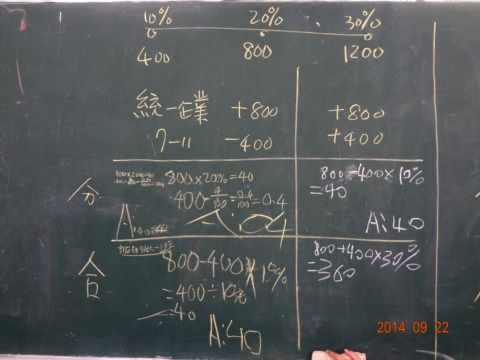 10% 20% 30%
400 800 1200
統一企業 +800 +800
7-11 -400 +400
分
800×20%=40
400-4/100=0.4/100=0.4
800-400×10%
=40
A:40
合
800-400×10%
=400÷10%
=40
A:40
800+400×30%
=360
2014 09 22